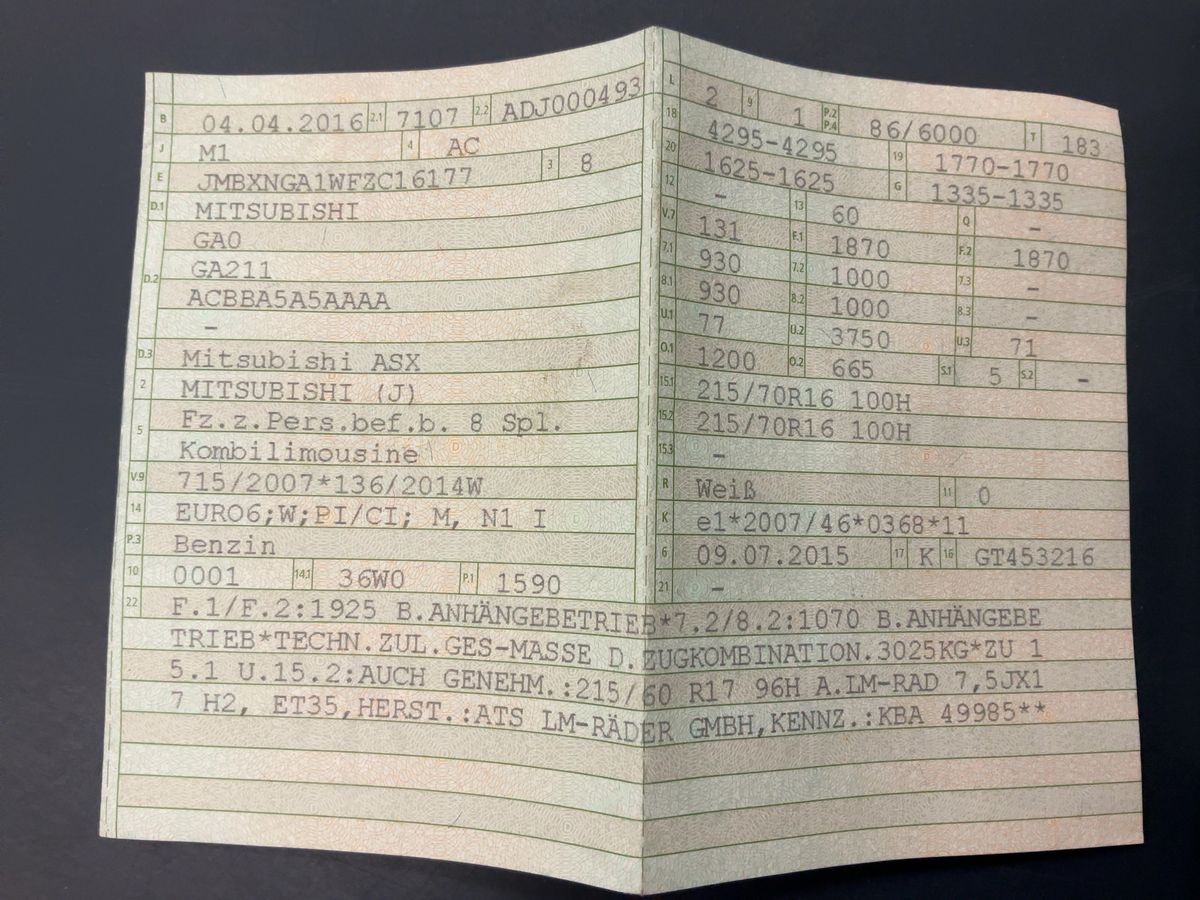 B 04.04.2016 2.1 7107 2.2 ADJ000493
J M1 4 AC
E JMBXNGA1WFZC16177 3 8
D.1 MITSUBISHI
D.2 GA0
GA211
ACBBA5A5AAAA
–
D.3 Mitsubishi ASX
2 MITSUBISHI (J)
5 Fz.z.Pers.bef.b. 8 Spl.
Kombilimousine
V.9 715/2007*136/2014W
14 EURO6;W;PI/CI; M, N1 I
P.3 Benzin
10 0001 14.1 36W0 P.1 1590
L 2 9 1 P.2 P.4 86/6000 T 183
18 4295-4295 19 1770-1770
20 1625-1625 G 1335-1335
12 – 13 60 Q –
V.7 131 F.1 1870 F.2 1870
7.1 930 7.2 1000 7.3 –
8.1 930 8.2 1000 8.3 –
U.1 77 U.2 3750 U.3 71
O.1 1200 O.2 665 S.1 5 S.2 –
15.1 215/70R16 100H
15.2 215/70R16 100H
15.3 –
R Weiß 11 0
K e1*2007/46*0368*11
6 09.07.2015 17 K 16 GT453216
21 –
22 F.1/F.2:1925 B.ANHÄNGEBETRIEB*7.2/8.2:1070 B.ANHÄNGEBE
TRIEB*TECHN.ZUL.GES-MASSE D.ZUGKOMBINATION.3025KG*ZU 1
5.1 U.15.2:AUCH GENEHM.:215/60 R17 96H A.LM-RAD 7,5JX1
7 H2, ET35,HERST.:ATS LM-RÄDER GMBH,KENNZ.:KBA 49985**